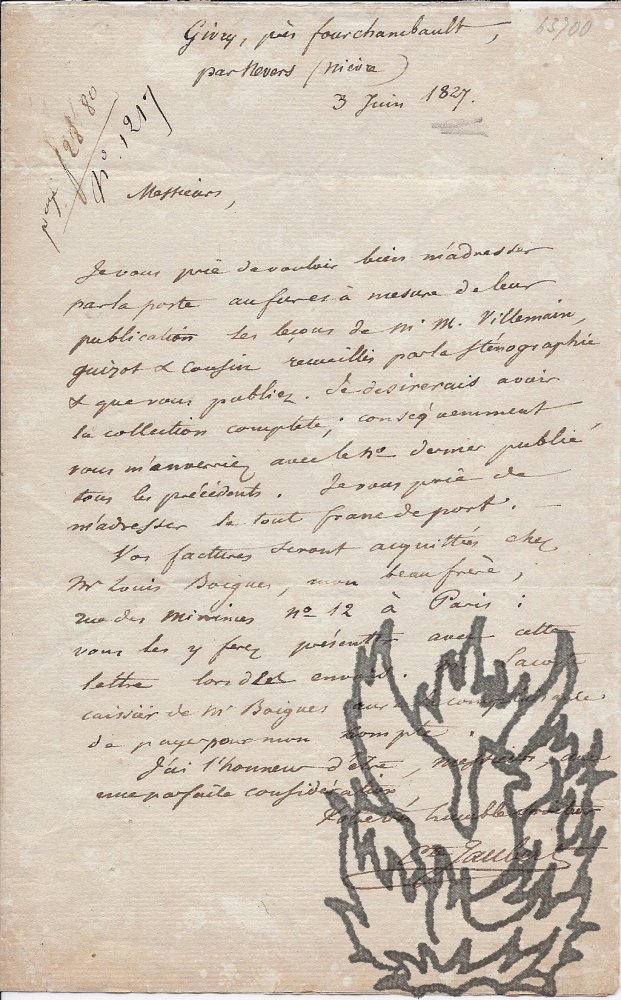 63900
Givry, près fourchambault,
par Nevers (nièvre)
3 Juin 1827.
payé f. 28 80
N°. 1217
Messieurs,
Je vous prie de vouloir bien m'adresser
par la poste au fur et à mesure de leur
publication les leçons de Mr M. Villemain,
guizot & Cousin recueillis par la sténographie
& que vous publiez. Je desirerais avoir
la collection complete; conséquemment
vous m'enverriez avec le no dernier publié
tous les précédents. Je vous prie de
m'adresser le tout franc de port. —
Vos factures seront acquittées chez
Mr Louis Boigues, mon beau frère,
rue des Minimes no 12 à Paris :
vous les y ferez présenter avec cette
lettre lors de l' envoi. Mr
caissier de Mr Boigues aura la complaisance
de payer pour mon compte.
J'ai l'honneur d'être, messieurs, avec
une parfaite considération,
Votre humble serviteur
Cte Jaubert